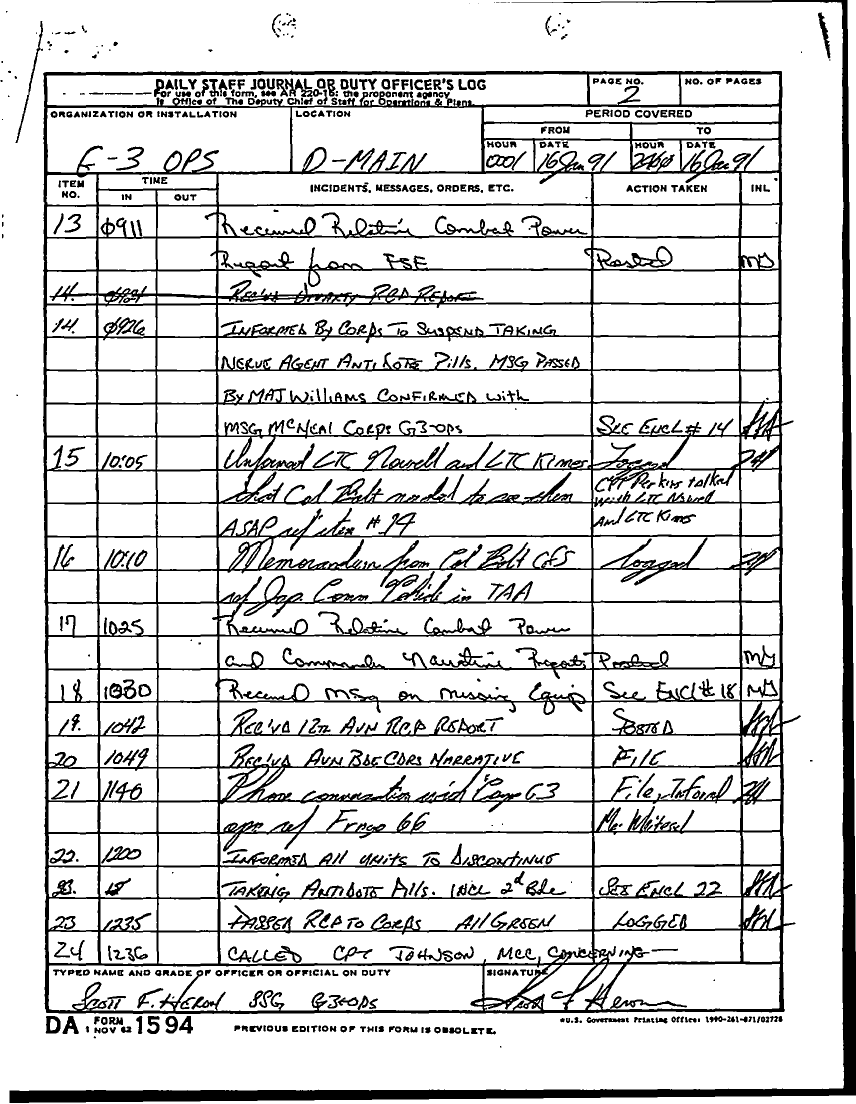 DAILY STAFF JOURNAL OR DUTY OFFICER'S LOG
For use of this form, see AR 220-15; the proponent agency
is Office of The Deputy Chief of Staff for Operations & Plans.
PAGE NO.
2
NO. OF PAGES
ORGANIZATION OR INSTALLATION
G-3 OPS
LOCATION
D-MAIN
PERIOD COVERED
FROM
TO
HOUR DATE HOUR DATE
0001 16 Jan 91 2400 16 Jan 91
ITEM NO. TIME IN OUT INCIDENTS, MESSAGES, ORDERS, ETC. ACTION TAKEN INL
13 0911 Received Relative Combat Power
Report from FSE Posted MJ
14. Rec'vd Divarty RCP Report
14. 0926 INFORMED BY CORPS TO SUSPEND TAKING
NERVE AGENT ANTIDOTE Pills. MSG PASSED
BY MAJ Williams CONFIRMED with
MSG McNEAL CORPS G3-OPS SEE ENCL # 14
15 10:05 Informed LTC Nowell and LTC Kimes Logged
that Col Bolt needed to see them CPT Perkins talked
with LTC Nowell
ASAP ref item # 14 And LTC Kimes
16 10:10 Memorandum from Col Bolt CofS logged
ref Jap. Comm Vehicle in TAA
17 1025 Received Relative Combat Power
and Commanders Narrative Reports Posted MJ
18 1030 Received Msg on missing Equip See ENCL # 18 MJ
19. 1042 REC'VD 12th AVN RCP REPORT POSTED
20 1049 REC'VD AVN BDE CDRS NARRATIVE FILE
21 1140 Phone conversation with Corps G3 File, Inform
ops ref Frago 66
22. 1200 INFORMED All UNITS TO DISCONTINUE
TAKING ANTIDOTE Pills. INCL 2d Bde SEE ENCL 22
23 1235 PASSED RCP TO CORPS All GREEN LOGGED
24 1236 CALLED CPT JOHNSON, MCC, CONCERNING—
TYPED NAME AND GRADE OF OFFICER OR OFFICIAL ON DUTY
SCOTT F. HERON SSG G3-OPS
SIGNATURE
Scott F Heron
DA FORM 1 NOV 62 1594
PREVIOUS EDITION OF THIS FORM IS OBSOLETE.
*U.S. Government Printing Office: 1990-261-871/02728